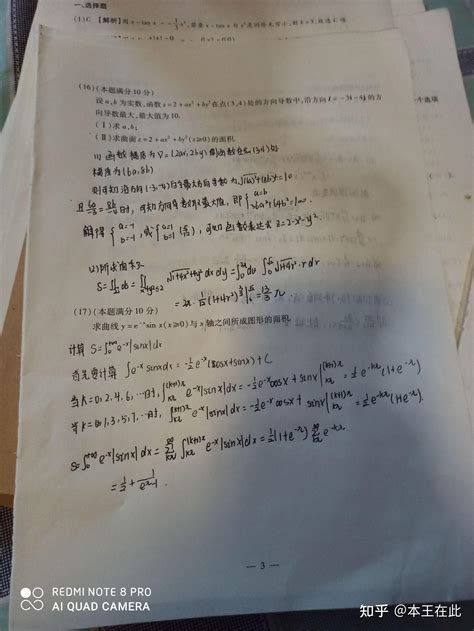 一、选择题
(1)C 【解析】
(16)(本题满分10分)
设a,b为实数,函数z=2+ax²+by²在点(3,4)处的方向导数中,沿方向l=-3i-4j的方
向导数最大,最大值为10.
(Ⅰ)求a,b;
(Ⅱ)求曲面z=2+ax²+by²(z≥0)的面积.
(1) 函数梯度为∇=(2ax,2by) 则函数在点(3,4)处
梯度为(6a,8b)
则可知沿方向(-3,-4)的最大方向导数为√(6a)²+(8b)²=10
且6a/-3=8b/-4时,可知方向导数取最大值,即{a=b 36a²+64b²=100
解得{a=-1 b=-1,或{a=1 b=1(舍),可知函数表达式z=2-x²-y²
S=∬dS=∬x²+y²≤2 √1+4x²+4y² dxdy=∫₀^2π dθ ∫₀^√2 √1+4r² · r dr
=2π·1/12(1+4r²)^3/2|₀^√2=13/3 π
(17)(本题满分10分)
求曲线y=e⁻ˣsin x(x≥0)与x轴之间所成图形的面积.
计算 S=∫₀^+∞ e⁻ˣ|sinx|dx
首先要计算 ∫e⁻ˣsinxdx=-1/2e⁻ˣ(cosx+sinx)+C
当k=0,2,4,6,…时,∫kπ^(k+1)π e⁻ˣ|sinx|dx=-1/2e⁻ˣ(cosx+sinx)|kπ^(k+1)π=1/2e^-kπ(1+e^-π)
当k=1,3,5,7,…时,∫kπ^(k+1)π e⁻ˣ|sinx|dx=1/2e⁻ˣ(cosx+sinx)|kπ^(k+1)π=1/2e^-kπ(1+e^-π).
S=∫₀^+∞ e⁻ˣ|sinx|dx=∑∫kπ^(k+1)π e⁻ˣ|sinx|dx=1/2(1+e^-π)∑e^-kπ
=1/2+1/(e^π-1)
— 3 —
REDMI NOTE 8 PRO
AI QUAD CAMERA
知乎 @本王在此